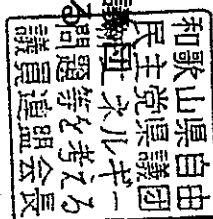 和歌山県自由
民主党県議団
エネルギー
問題等を考える
議員連盟会長